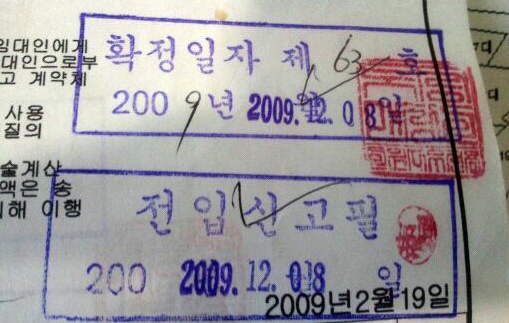 임대인에게
대인으로부
고 계약체
사용
질의
술계산
액은 송
해 이행
확정일자 제 63 호
200 9년 2009.12.08 일
전입신고필
200 2009.12.08 일
2009년2월19일